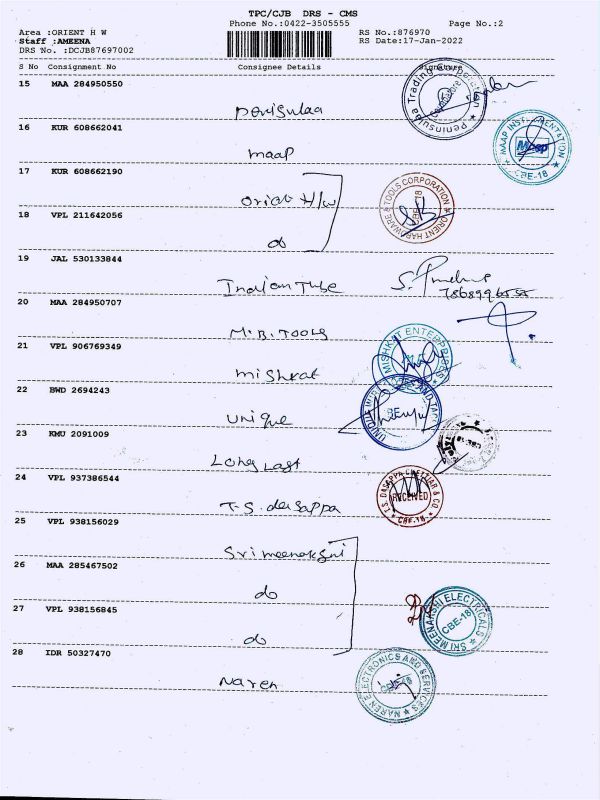 TPC/CJB DRS - CMS
Phone No.:0422-3505555 Page No.:2
Area :ORIENT H W RS No.:876970
Staff :AMEENA RS Date:17-Jan-2022
DRS No. :DCJB87697002
S No Consignment No Consignee Details Signature
15 MAA 284950550
Penisulaa
Peninsulaa Trading Corporation Coimbatore
16 KUR 608662041
maap
MAAP INSTRUMENTATION Maap CBE-18
17 KUR 608662190
Orient H/w
ORIENT HARDWARE & TOOLS CORPORATION CBE-18
18 VPL 211642056
do
19 JAL 530133844
Indian Tube
20 MAA 284950707
M.B. TOOLS
21 VPL 906769349
mishkat
MISHKAT ENTERPRISES
22 BWD 2694243
unique
23 KMU 2091009
Long Last
24 VPL 937386544
T.S. dasappa
T.S. DASAPPA CHETTIAR & CO. RECEIVED CBE-18
25 VPL 938156029
Sri meenakshi
26 MAA 285467502
do
27 VPL 938156845
do
SRI MEENAKSHI ELECTRICALS CBE-18
28 IDR 50327470
Naren
NAREN ELECTRONICS AND SERVICES